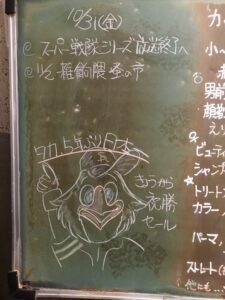 10/31(金)
@ スーパー戦隊シリーズ放送終了へ
@ 11/2 雑餉隈蚤の市
タカ 5年ぶり日本一
きょうから
優勝
セール
カ
小
男前
顔
えり
ビューティ
シャンプ
トリート
カラー
パーマ
ストレート(